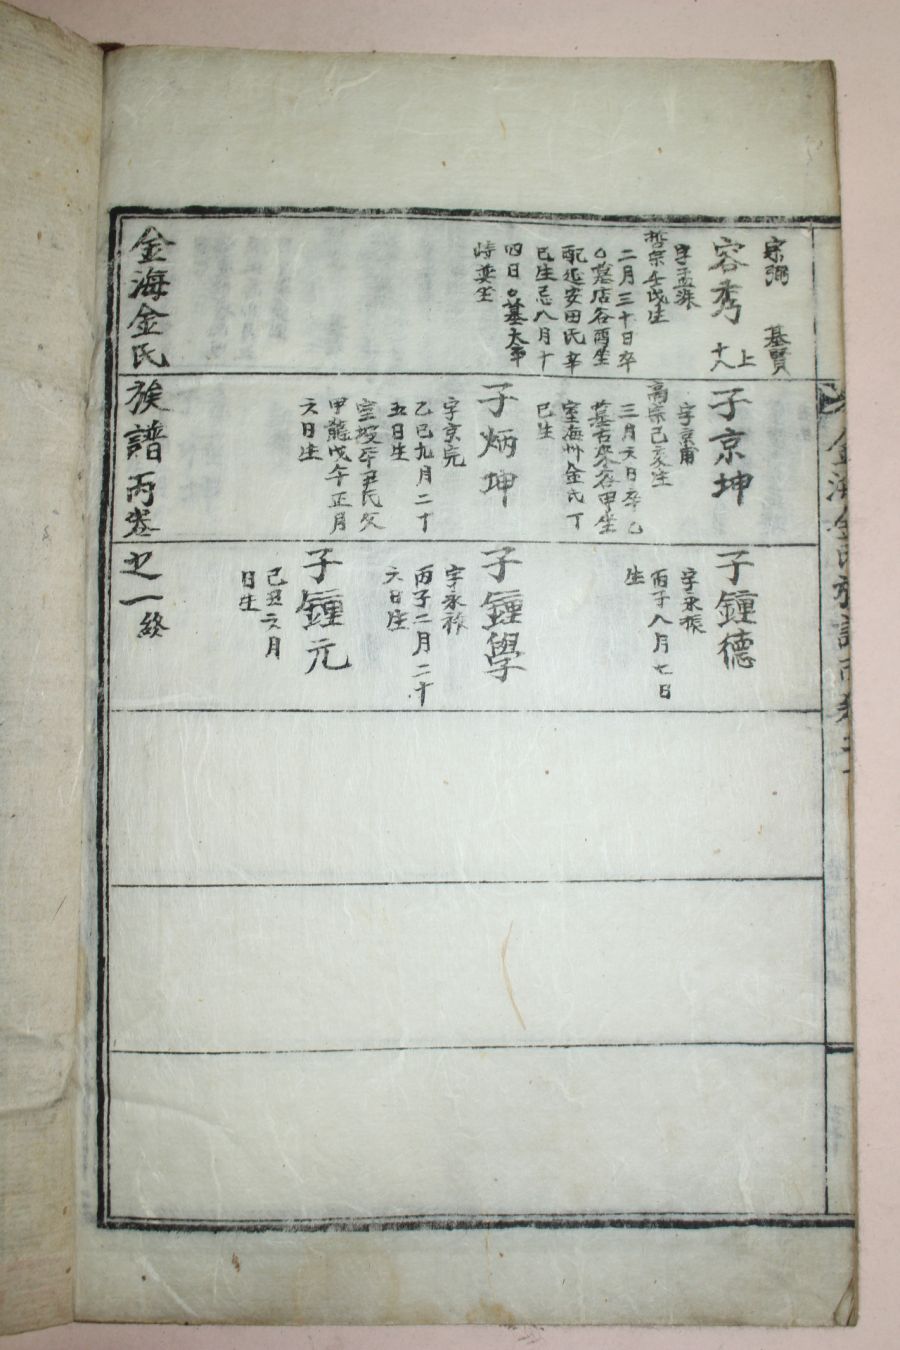 宗弼 基賢
容秀
上
十八
字孟洙
哲宗壬戌生
二月三十日卒
墓店谷酉坐
配延安田氏辛
巳生忌八月十
四日墓大箏
峙艮坐
子京坤
字京甫
高宗己亥生
三月六日卒乙
墓右麥谷甲坐
室海州金氏丁
巳生
子炳坤
字京完
乙巳九月二十
五日生
室坡平尹氏父
甲龍戊午正月
六日生
子鐘德
字永振
丙子八月七日
生
子鐘學
字永祿
丙子二月二十
六日生
子鐘元
己丑六月
日生
金海金氏族譜丙卷之一終
金海金氏族譜丙卷之一